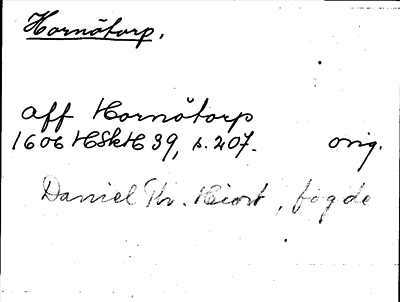 Hornötorp.
aff Hornötorp
1606 HSkH 39, s. 207. orig.
Daniel Kr. Hiort, fogde